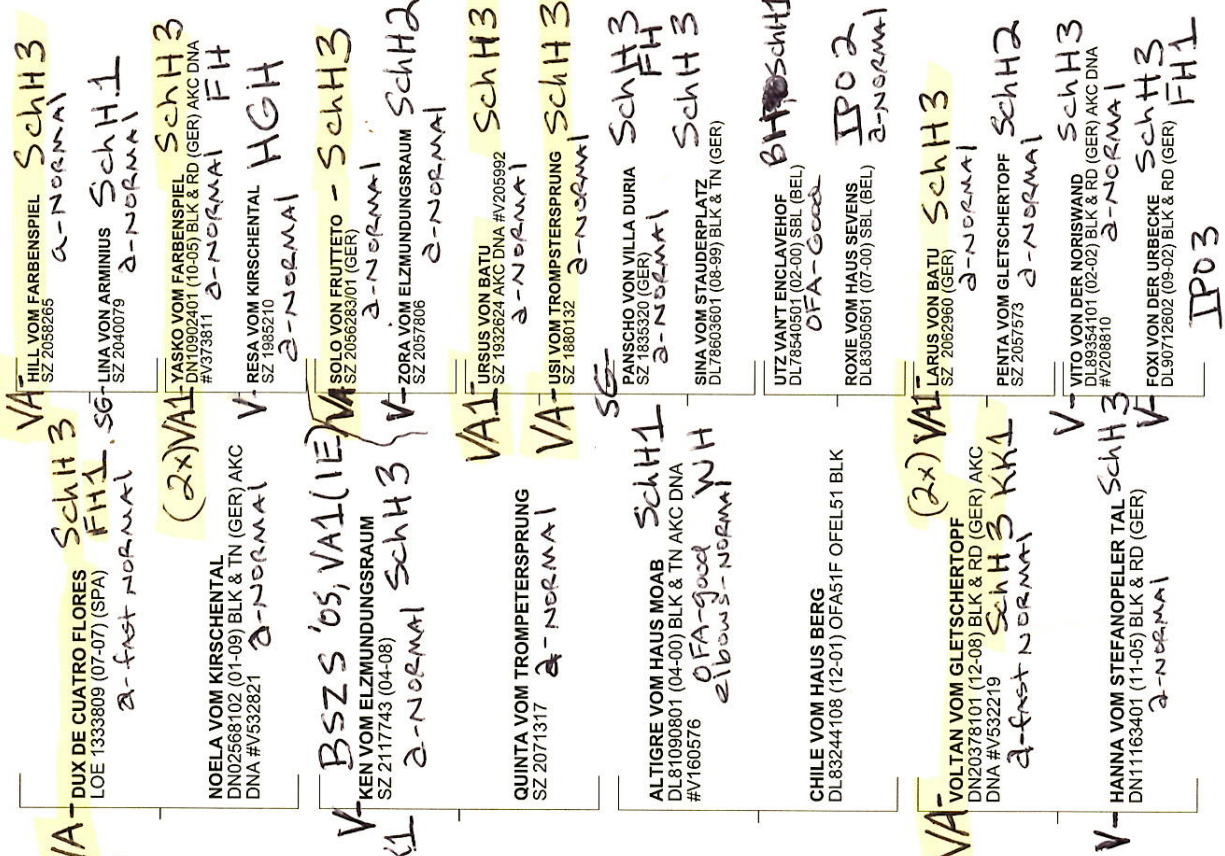 VA- DUX DE CUATRO FLORES SchH3
LOE 1333809 (07-07) (SPA) FH1.
a-fast NORMAl
NOELA VOM KIRSCHENTAL
DN02568102 (01-09) BLK & TN (GER) AKC
DNA #V532821 a-NORMAl
BSZS '05, VA1(IE)
V- KEN VOM ELZMUNDUNGSRAUM
SZ 2117743 (04-08)
a-NORMAl SchH3
QUINTA VOM TROMPETERSPRUNG
SZ 2071317 a-NORMAl
ALTIGRE VOM HAUS MOAB SchH1
DL81090801 (04-00) BLK & TN AKC DNA
#V160576 OFA-good WH
elbows-NORMAl
CHILE VOM HAUS BERG
DL83244108 (12-01) OFA51F OFEL51 BLK
VA- VOLTAN VOM GLETSCHERTOPF
DN20378101 (12-08) BLK & RD (GER) AKC
DNA #V532219 SchH3 KK1
a-fast NORMAl
V- HANNA VOM STEFANOPELER TAL SchH3
DN11163401 (11-05) BLK & RD (GER)
a-NORMAl
VA- HILL VOM FARBENSPIEL SchH3
SZ 2058265 a-NORMAl
SG- LINA VON ARMINIUS SchH1
SZ 2040079 a-NORMAl
(2x)VA1- YASKO VOM FARBENSPIEL SchH3
DN10902401 (10-05) BLK & RD (GER) AKC DNA
#V373811 a-NORMAl FH
V- RESA VOM KIRSCHENTAL HGH
SZ 1985210 a-NORMAl
VA SOLO VON FRUTTETO - SchH3
SZ 2056283/01 (GER)
a-NORMAl
V- ZORA VOM ELZMUNDUNGSRAUM SchH2
SZ 2057806 a-NORMAl
VA1- URSUS VON BATU SchH3
SZ 1932624 AKC DNA #V205992
a-NORMAl
VA- USI VOM TROMPSTERSPRUNG SchH3
SZ 1880132 a-NORMAl
SG- PANSCHO VON VILLA DURIA SchH3
SZ 1835320 (GER) FH
a-NORMAl
SINA VOM STAUDERPLATZ SchH3
DL78603601 (08-99) BLK & TN (GER)
UTZ VAN'T ENCLAVEHOF BH SchH1
DL78540501 (02-00) SBL (BEL)
OFA-Good
ROXIE VOM HAUS SEVENS IPO2
DL83050501 (07-00) SBL (BEL) a-NORMAl
(2x) VA1- LARUS VON BATU SchH3
SZ 2062960 (GER) a-NORMAl
PENTA VOM GLETSCHERTOPF SchH2
SZ 2057573 a-NORMAl
V- VITO VON DER NORISWAND SchH3
DL89354101 (02-02) BLK & RD (GER) AKC DNA
#V208810 a-NORMAl
V- FOXI VON DER URBECKE SchH3
DL90712602 (09-02) BLK & RD (GER) FH1
IPO3